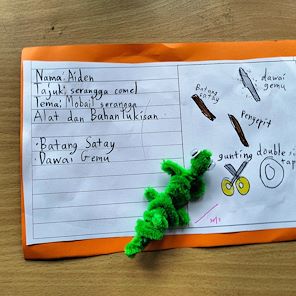 Nama: Aiden
Tajuk: serangga comel
Tema: Mobail serangga
Alat dan Bahan lukisan
·Batang Satay
·Dawai Gemu
Batang satay
dawai gemu
Pengepit
gunting
double si
tap